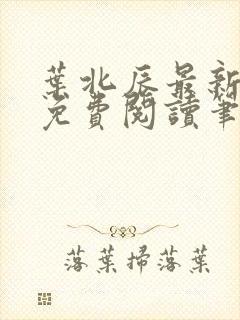 葉北辰最新
免費閱讀筆
落葉掃落葉